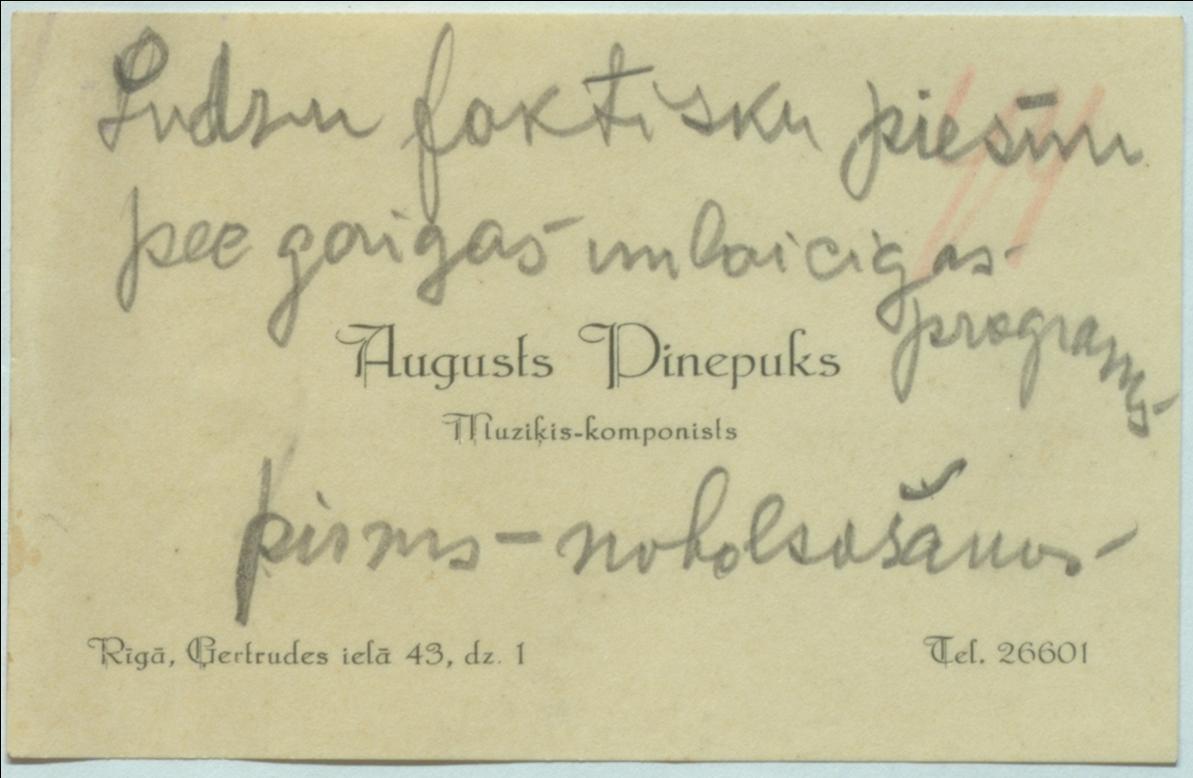 Ludzu faktisku piesūu
pee garigas un laicigas
programs
Augusts Pinepuks
Muziķis-komponists
pirms - nobalsošanos
Rīgā, Gertrudes ielā 43, dz. 1
Tel. 26601